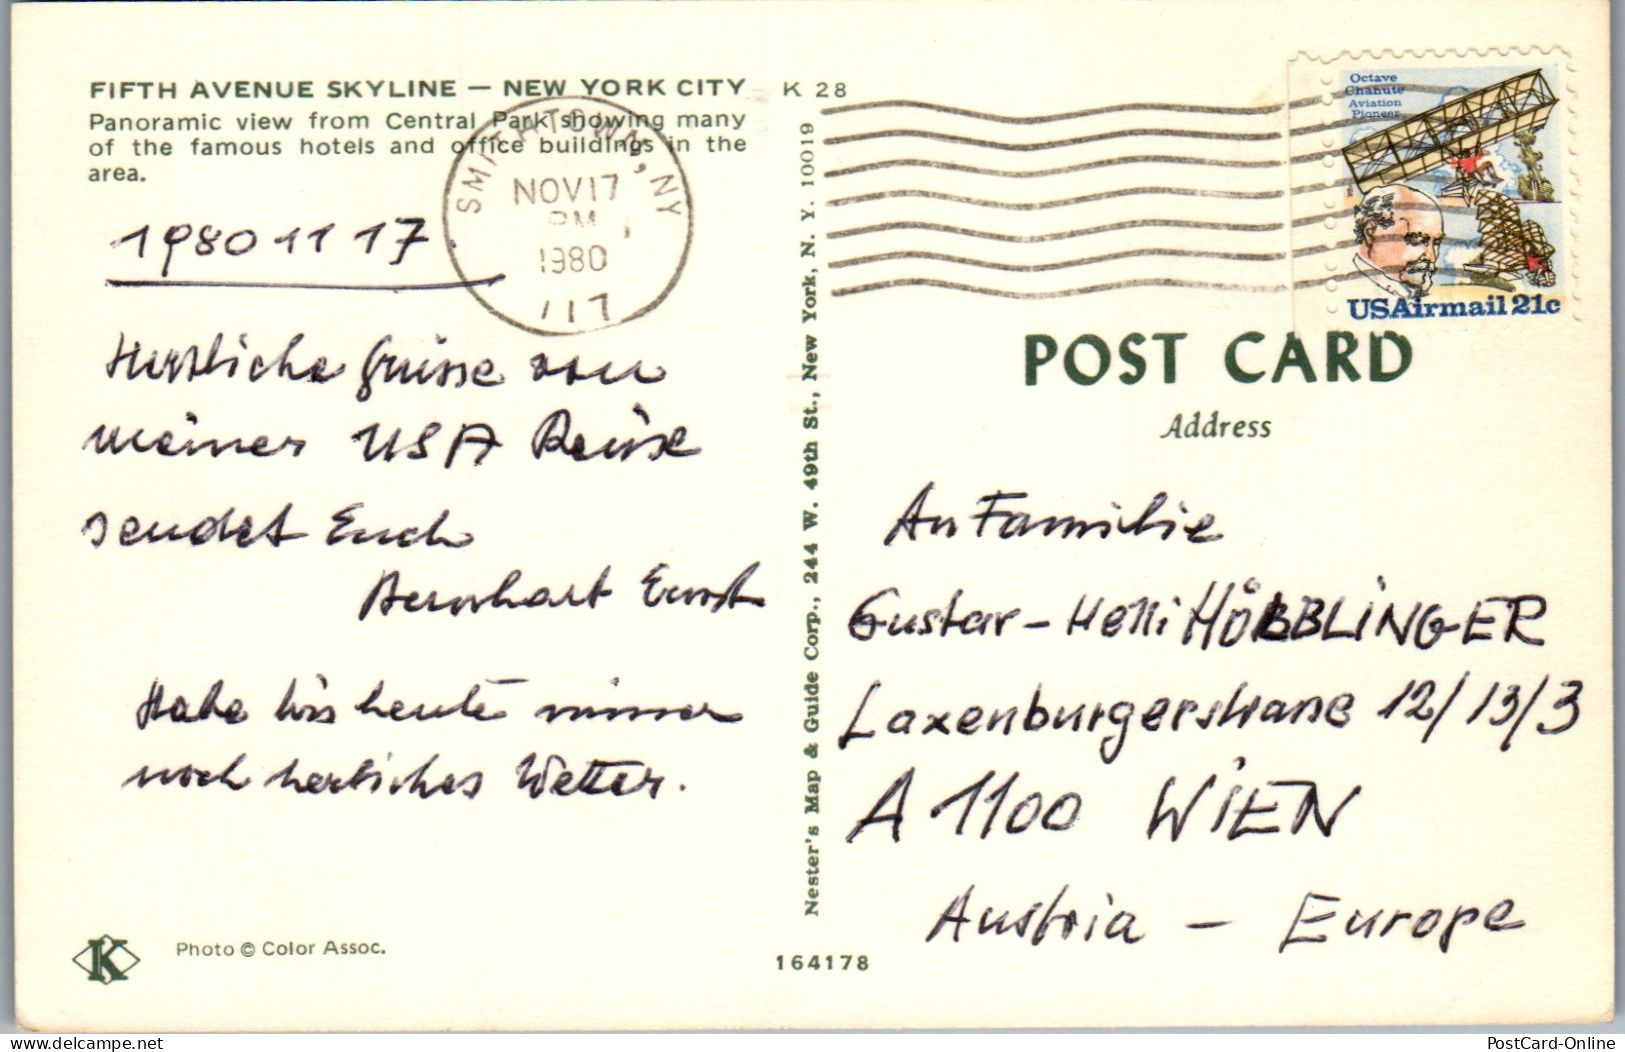 FIFTH AVENUE SKYLINE — NEW YORK CITY K 28
Panoramic view from Central Park showing many
of the famous hotels and office buildings in the
area.
SMITHTOWN, NY
NOV 17
PM
1980
117
1980 11 17
Herzliche Grüsse von
meiner USA Reise
sendet Euch
Bernhart Ernst
Habe bis heute immer
noch herliches Wetter.
Photo © Color Assoc.
K
Nester's Map & Guide Corp., 244 W. 49th St., New York, N. Y. 10019
164178
Octave
Chanute
Aviation
Pioneer
USAirmail 21c
POST CARD
Address
An Familie
Gustav - Helli HÖBBLINGER
Laxenburgerstrasse 12/13/3
A 1100 WIEN
Austria - Europe
delcampe.net
PostCard-Online